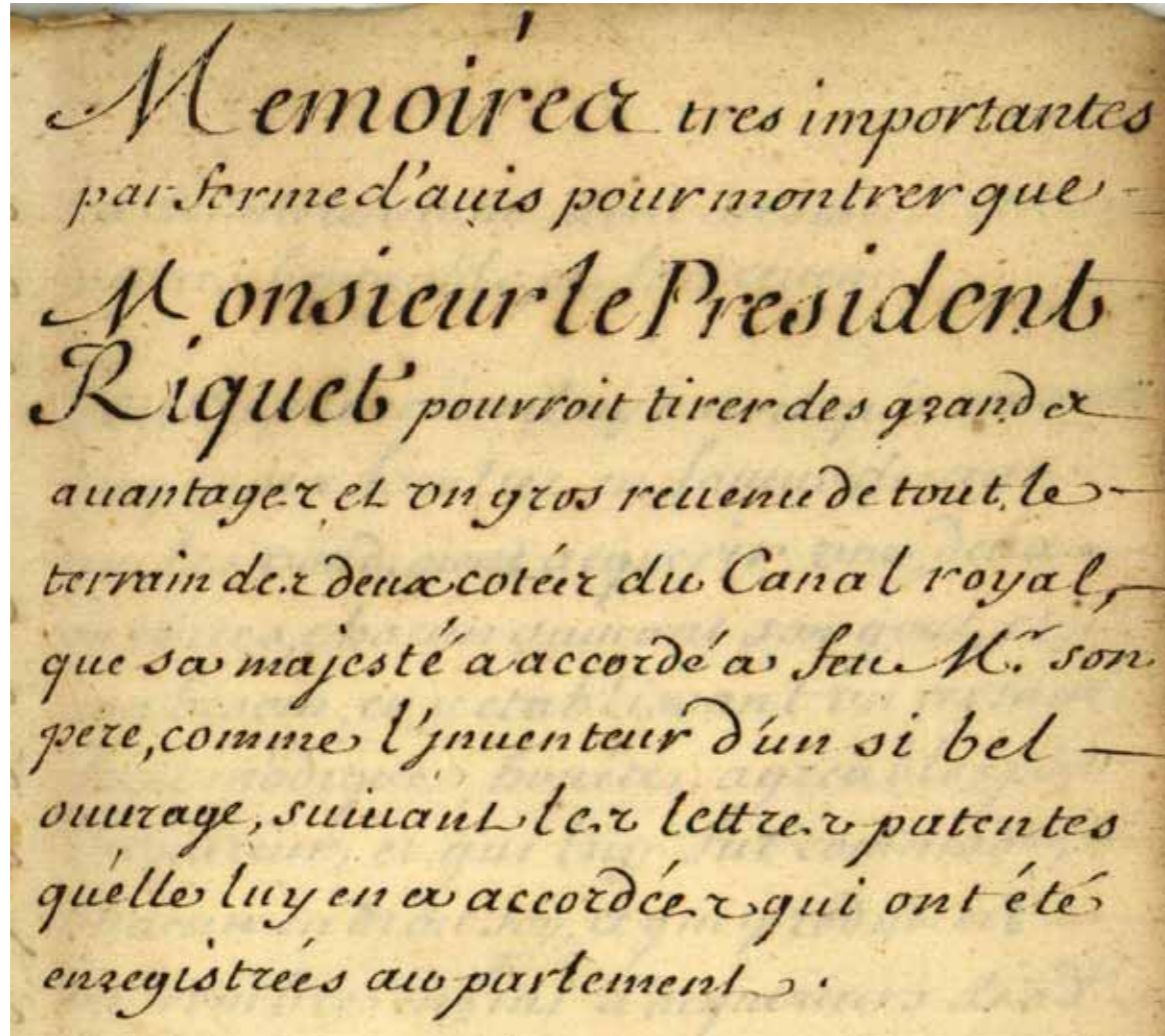 Memoires tres importantes
par forme d'auis pour montrer que
Monsieur le President
Riquet pourroit tirer des grands
auantages et vn gros reuenu de tout le
terrain des deux cotéés du Canal royal,
que sa majesté a accordé a feu Mr. son
pere, comme l'jnuenteur d'un si bel
ouurage, suiuant les lettres patentes
qu'elle luy en a accordées qui ont été
enregistrées au parlement.